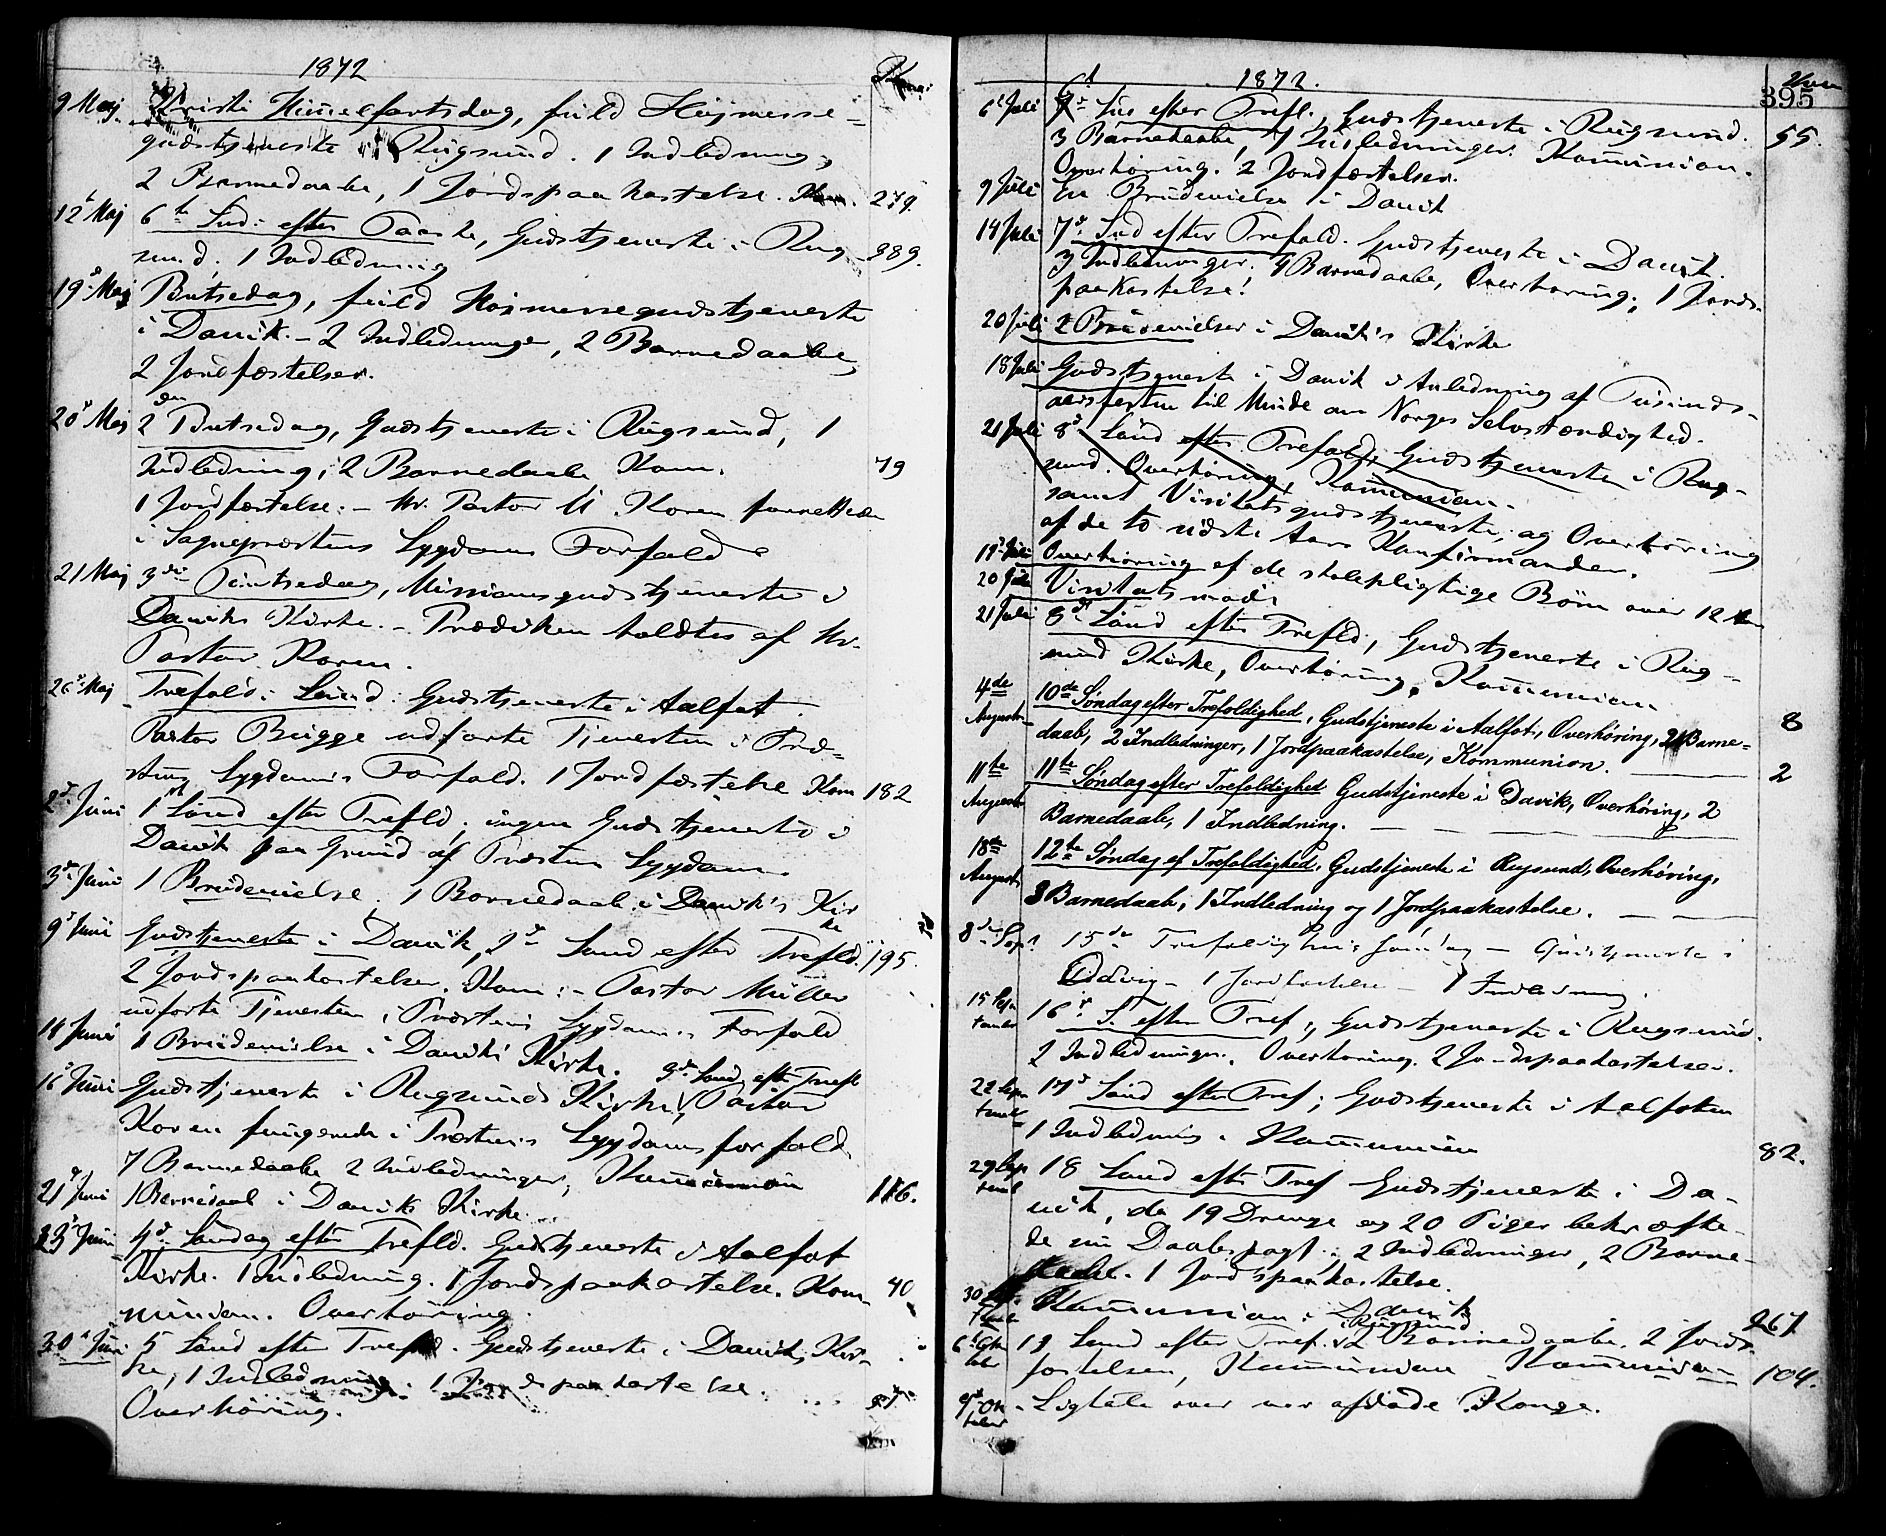 1872
Kom:
9 Maj. Kristi Himmelfartsdag, fuld Højmesse-
gudstjeneste i Rugsund. 1 Indledning,
2 Barnedaabe, 1 Jordspaakastelse. Kom. 279.
12t Maj 6te Sønd: efter Paaske, Gudstjeneste i Rug-
sund. 1 Indledning 389.
19d Maj Pintsedag, fuld Højmessegudstjeneste
i Davik. - 2 Indledninger, 2 Barnedaabe,
2 Jordfæstelser.
20d Maj 2den Pintsedag, Gudstjeneste i Rugsund, 1
Indledning, 2 Barnedaabe, Kom. 79
1 Jordfæstelse. - Hr. Pastor U. Koren forrettede
i Sognepræstens Sygdoms Forfald.
21 Maj 3die Pintsedag, Missionsgudstjeneste i
Daviks Kirke. - Prædiken holdtes af Hr.
Pastor Koren.
26d Maj Trefold: Sønd: Gudstjeneste i Aalfot.
Pastor Brigge udførte Tjenesten i Præ-
stens Sygdoms Forfald. 1 Jordfæstelse Kom 182
2d Juni 1st Sønd efter Trefld; ingen Gudstjeneste i
Davik paa Grund af Præstens Sygdom.
3d Juni 1 Brudevielse. 1 Barnedaab i Davik's Kir
ke
9d Juni Gudstjeneste i Davik, 2d Sønd efter Trefld. 195.
2 Jordspaakastelser. Kom: - Pastor Müller
udførte Tjenesten i Præstens Sygdoms Forfald
14 Juni 1 Brudevielse i Daviks Kirke. 3d Sønd efter Trefl
16d Juni Gudstjeneste i Rugsunds Kirke, Pastor
Koren fungerende i Præstens Sygdomsforfald.
7 Barnedaabe 2 Indledninger, Kommunion 116.
21d Juni 1 Barnedaab i Daviks Kirke.
23d Juni 4d Søndag efter Trefld. Gudstjeneste i Aalfot
Kirke. 1 Indledning. 1 Jordspaakastelse. Kom- 40
munion. Overhøring.
30d Juni 5 Sønd efter Trefld. Gudstjeneste i Daviks Kir-
ke, 1 Indledning. 1 Jordspaakastelse.
Overhøring.
1872.
395
6t Juli Sød efter Trefl., Gudstjeneste i Rugsund. 55.
3 Barnedaabe, Indledninger. Kommunion.
Overhøring. 2 Jordfæstelser.
9 Juli En Brudevielse i Davik
14 Juli 7d Sød efter Trefold. Gudstjeneste i Davik.
3 Indledninger. 4 Barnedaabe, Overhøring, 1 Jords-
paakastelse.
20 Juli 2 Brudevielser i Davik's Kirke
18 Juli Gudstjeneste i Davik i Anledning af Tusinds-
aarsfesten til Minde om Norges Selvstændighed.
21 Juli 8d Sønd efter Trefold; Gudstjeneste i Rug-
sund. Overhøring, Kommunion.
samt Visitatsgudstjeneste, og Overhøring
af de to sidste Aars Konfirmander.
19d Juli Overhøring af de skolepligtige Børn over 12 Aar
20 Juli Visitatsmøde
21 Juli 8d Sønd efter Trefld, Gudstjeneste i Rug-
sund Kirke, Overhøring, Kommunion
4de August 10de Søndag efter Trefoldighed, Gudstjeneste i Aalfot, Overhøring, 2 Barne- 8
daab, 2 Indledninger, 1 Jordpaakastelse, Kommunion.
11te August 11te Søndag efter Trefoldighed Gudstjeneste i Davik, Overhøring, 2 2
Barnedaab, 1 Indledning.
18de August 12te Søndag ef. Trefoldighed, Gudstjeneste i Rugsund, Overhøring,
3 Barnedaab, 1 Indledning og 1 Jordpaakastelse.
8de Sep. 15de Trefoldigheds Søndag - Gudstjeneste i
Davig - 1 Jordfæstelse - 1 Indledning.
15 September 16d S. efter Tref; Gudstjeneste i Rugsund.
2 Indledninger. Overhøring. 2 Jordspaakastelser.
22 September 17d Sønd efter Tref; Gudstjeneste i Aalfoten
1 Indledning. Kommunion 82.
29 September 18 Sønd efter Tref Gudstjeneste i Da-
vik, da 19 Drenge og 20 Piger bekræfte-
de sin Daabspagt; 2 Indledninger, 2 Barne-
daabe. 1 Jordspaakastelse.
30 Kommunion i Davik 267.
Rugsund
6t Oktober 19 Sønd efter Tref. 2 Barnedaabe. 2 Jord-
fæstelser, Kommunion Kommunion 104.
9d Oktober Ligtale over vor afdøde Konge.